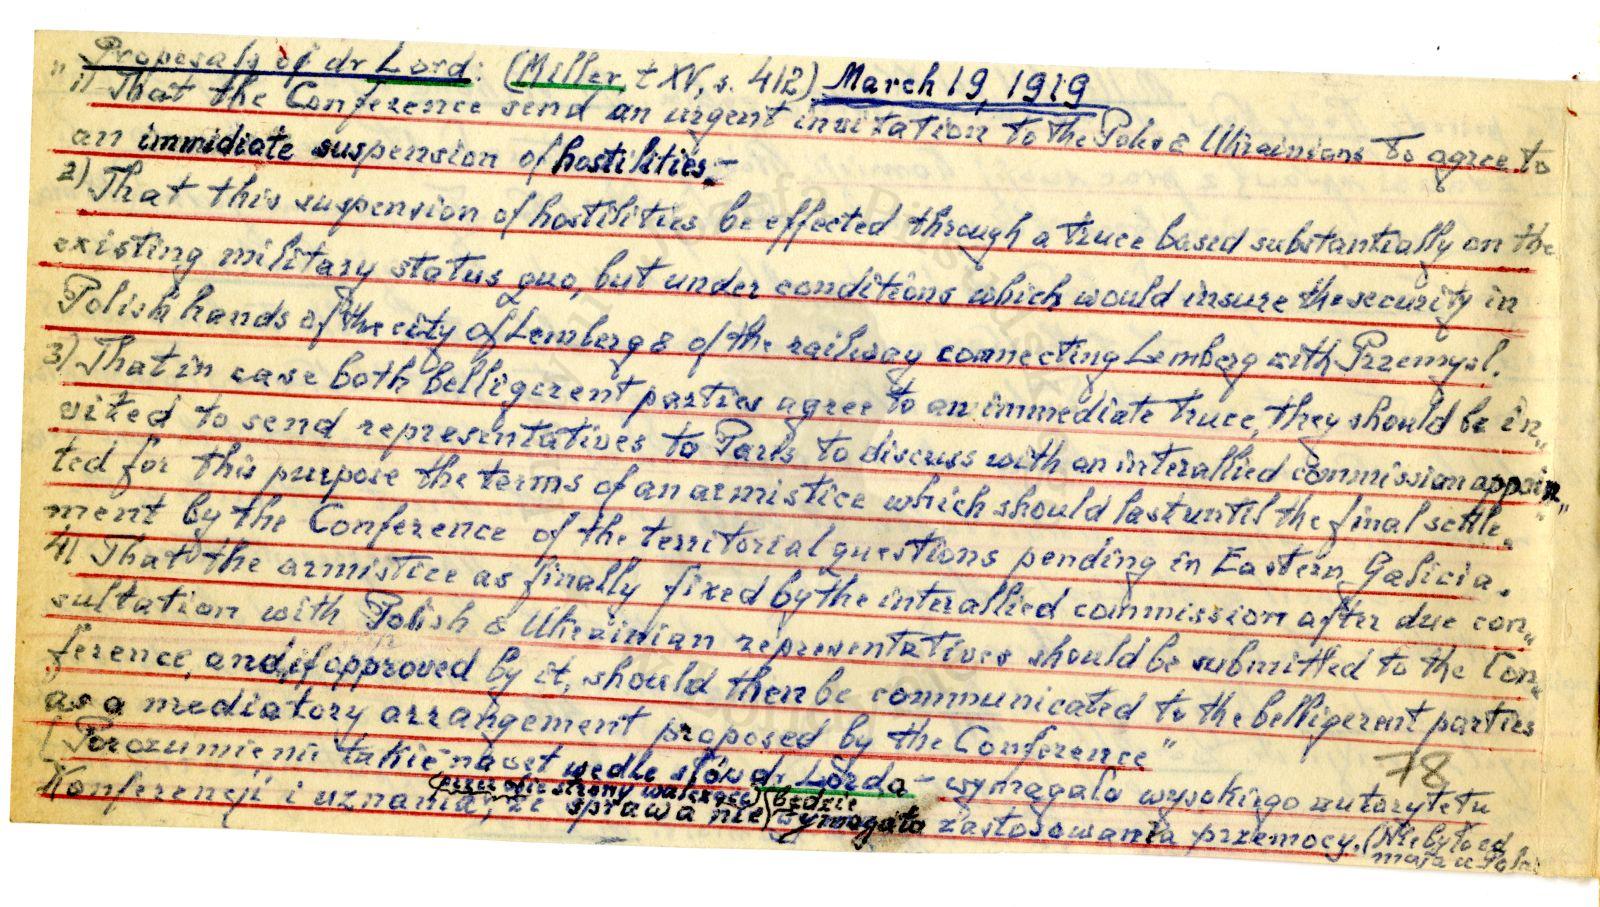 Proposals of dr Lord: (Miller, t XV, s. 412) March 19, 1919
" 1) That the Conference send an urgent invitation to the Poles & Ukrainians to agree to
an immidiate suspension of hostilities.-
2) That this suspension of hostilities be effected through a truce based substantially on the
existing military status quo, but under conditions which would insure the security in
Polish hands of the city of Lemberg & of the railway connecting Lemberg with Przemysl.
3) That in case both belligerent parties agree to an immediate truce, they should be in„
vited to send representatives to Paris to discuss with an interallied commission appoin„
ted for this purpose the terms of an armistice which should last until the final settle„
ment by the Conference of the territorial questions pending in Eastern Galicia.
4) That the armistice as finally fixed by the interallied commission after due con„
sultation with Polish & Ukrainian representatives should be submitted to the Con„
ference, and, if approved by it, should then be communicated to the belligerent parties
as a mediatory arrangement proposed by the Conference"
78
[Porozumienie takie nawet wedle słów dr Lorda - wymagało wysokiego autorytetu
Konferencji i uznania, przez obie strony walczące, że sprawa nie będzie wymagało zastosowania przemocy. (Nie było ed